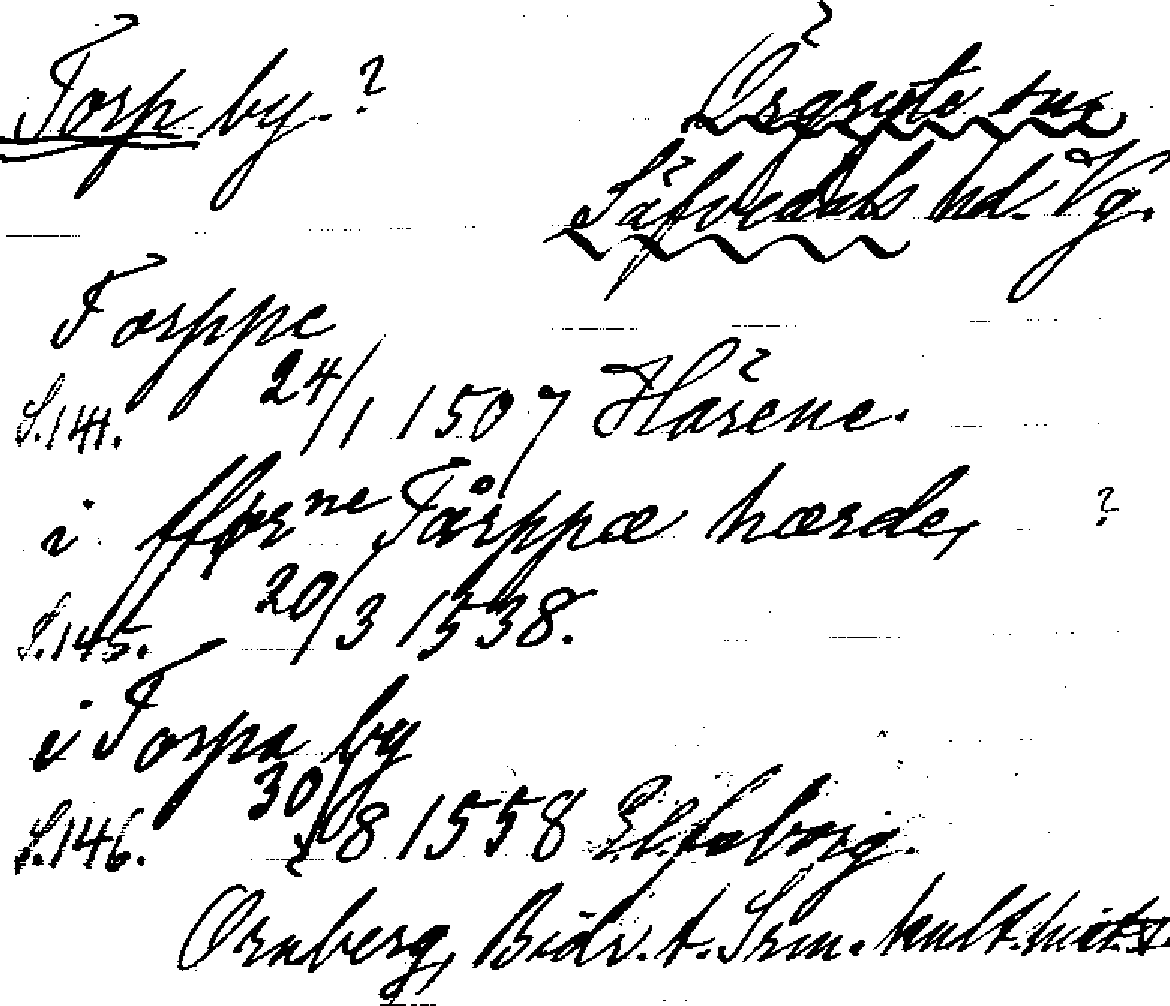 Torp by. ?
Örgryte sn
Säfvedals hd. Vg.
Torppe
S.141. 24/1 1507 Hårene.
i ffør ne Tårppæ hærde, ?
S.145. 20/3 1538.
i Torpa by
S.146. 30/8 1558 Elfsborg.
Ørnberg, Bidr. t. Srm. kult. hist.